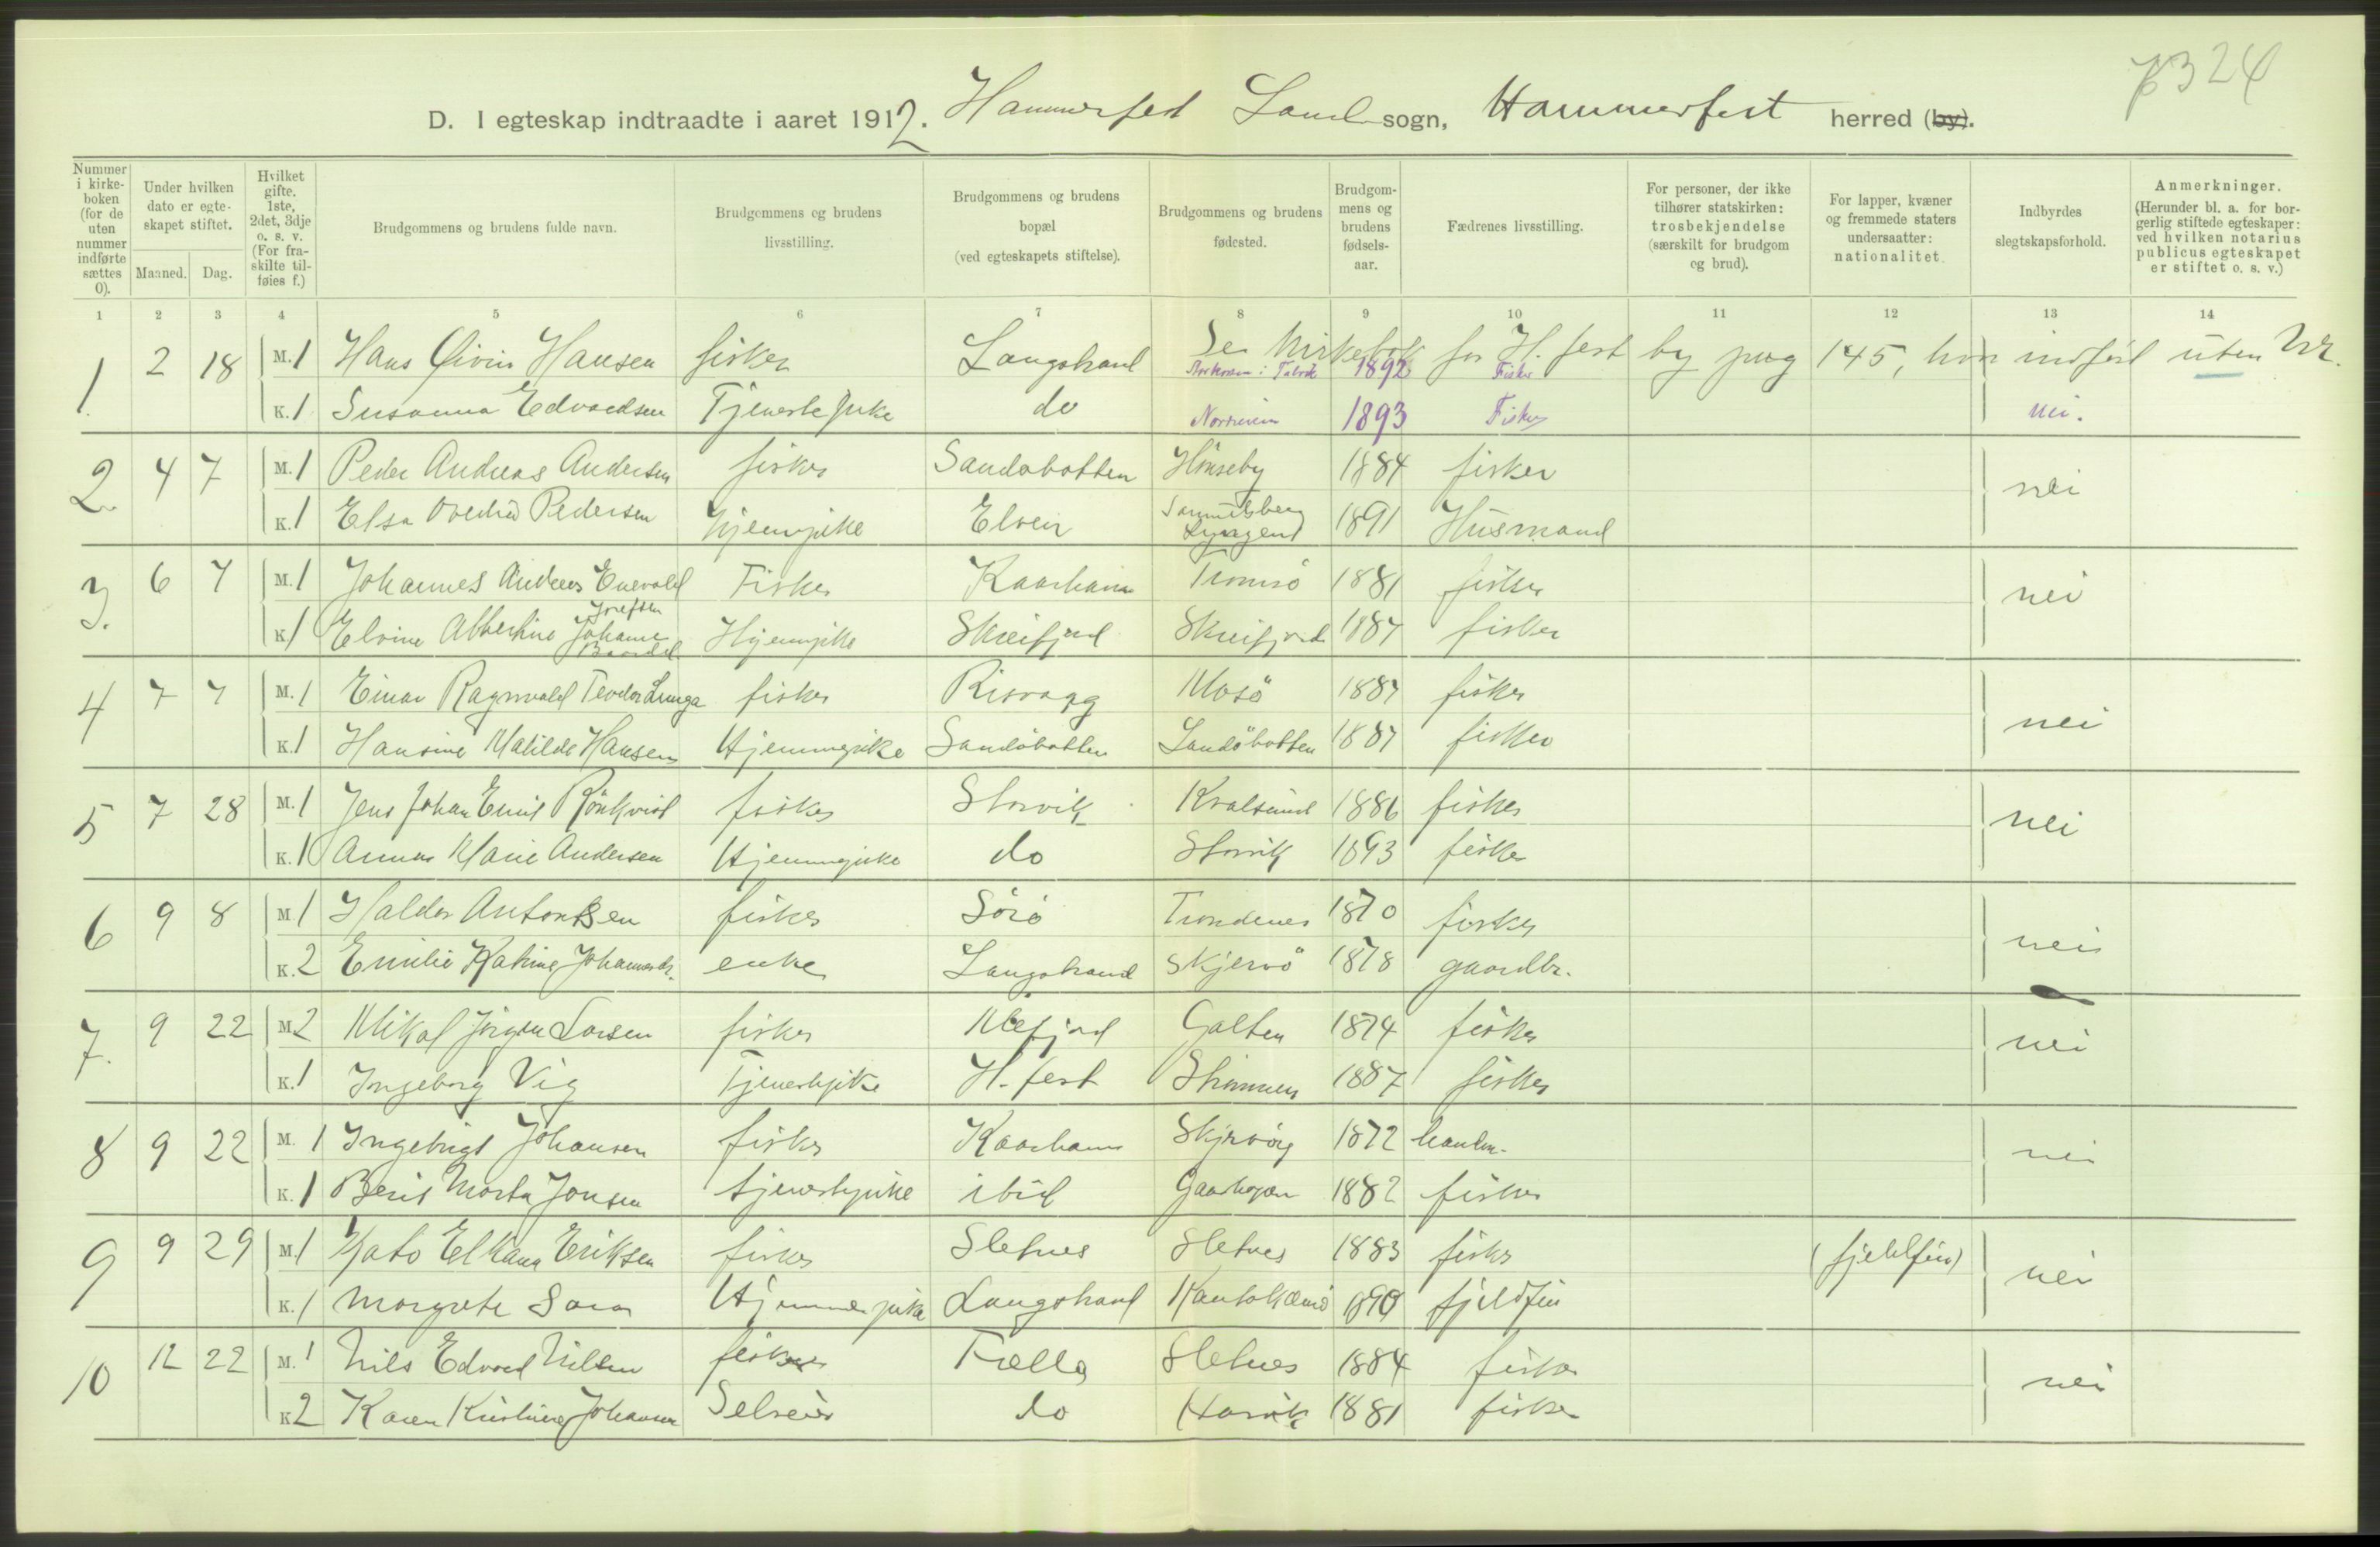 7324
D. I egteskap indtraadte i aaret 1912. Hammerfest Land sogn, Hammerfest herred (by).
Nummer i kirkeboken (for de uten nummer indførte sættes 0).
Under hvilken dato er egteskapet stiftet.
Maaned. Dag.
Hvilket gifte. 1ste, 2det, 3dje o. s. v. (For fraskilte tilføies f.)
Brudgommens og brudens fulde navn.
Brudgommens og brudens livsstilling.
Brudgommens og brudens bopæl (ved egteskapets stiftelse).
Brudgommens og brudens fødested.
Brudgommens og brudens fødselsaar.
Fædrenes livsstilling.
For personer, der ikke tilhører statskirken: trosbekjendelse (særskilt for brudgom og brud).
For lapper, kvæner og fremmede staters undersaatter: nationalitet.
Indbyrdes slegtskapsforhold.
Anmerkninger. (Herunder bl. a. for borgerlig stiftede egteskaper: ved hvilken notarius publicus egteskapet er stiftet o. s. v.)
1 2 3 4 5 6 7 8 9 10 11 12 13 14
Se kirkebok for H.fest by pag 145, hvor indført uten Nr.
1. 2 18 M. 1 Hans Øivin Hansen fisker Langstrand 1892 Fisker
K. 1 Susanna Edvardsen Tjenestepike do 1893 Fisker nei.
2 4 7 M. 1 Peder Andreas Andersen fisker Sandøbotten Hönseby 1884 fisker nei
K. 1 Elsa Pedersen hjemmepike Elven Lyngen 1891 Husmand
3. 6 7 M. 1 Johannes Andreas Enevold Josefsen Fisker Kaarhavn Tromsö 1881 fisker nei
K. 1 Elvine Albertine Johanne Hjemmepike Skreifjord Skreifjord 1887 fisker
4 7 7 M. 1 Einar Ragnvald Teodor Lunga fisker Risvaag Masö 1887 fisker nei
K. 1 Hansine Matilde Hansen Hjemmepike Sandöbotten Sandöbotten 1887 fisker
5 7 28 M. 1 Jens Johan Emil Rönkvist fisker Storvik Kvalsund 1886 fisker nei
K. 1 Anna Marie Andersen Hjemmepike do Storvik 1893 fisker
6 9 8 M. 1 Haldor Antonsen fisker Sörö Trondenes 1870 fisker nei
K. 2 Emilie Katrine Johannesdr. enke Langstrand Skjervö 1878 gaardbr.
7. 9 22 M. 2 Mikal Jörgen Larsen fisker Mefjord Galten 1874 fisker nei
K. 1 Ingeborg Vig Tjenestepike H.fest Strömmen 1887 fisker
8 9 22 M. 1 Ingebrigt Johansen fisker Kaarhavn Skjervöy 1872 nei
K. 1 Berit Marta Jonsen tjenestepike ibid 1882 fisker
9 9 29 M. 1 Elkana Eriksen fisker Sletnes Sletnes 1883 fisker (fjeldfin) nei
K. 1 Margrete Sara Hjemmepike Langstrand Kautokeino 1890 fjeldfin
10 12 22 M. 1 Nils Edvard Nilsen fisker Fælles Sletnes 1884 fisker nei
K. 2 Karen Kristine Johansen Selveier do 1881 fisker